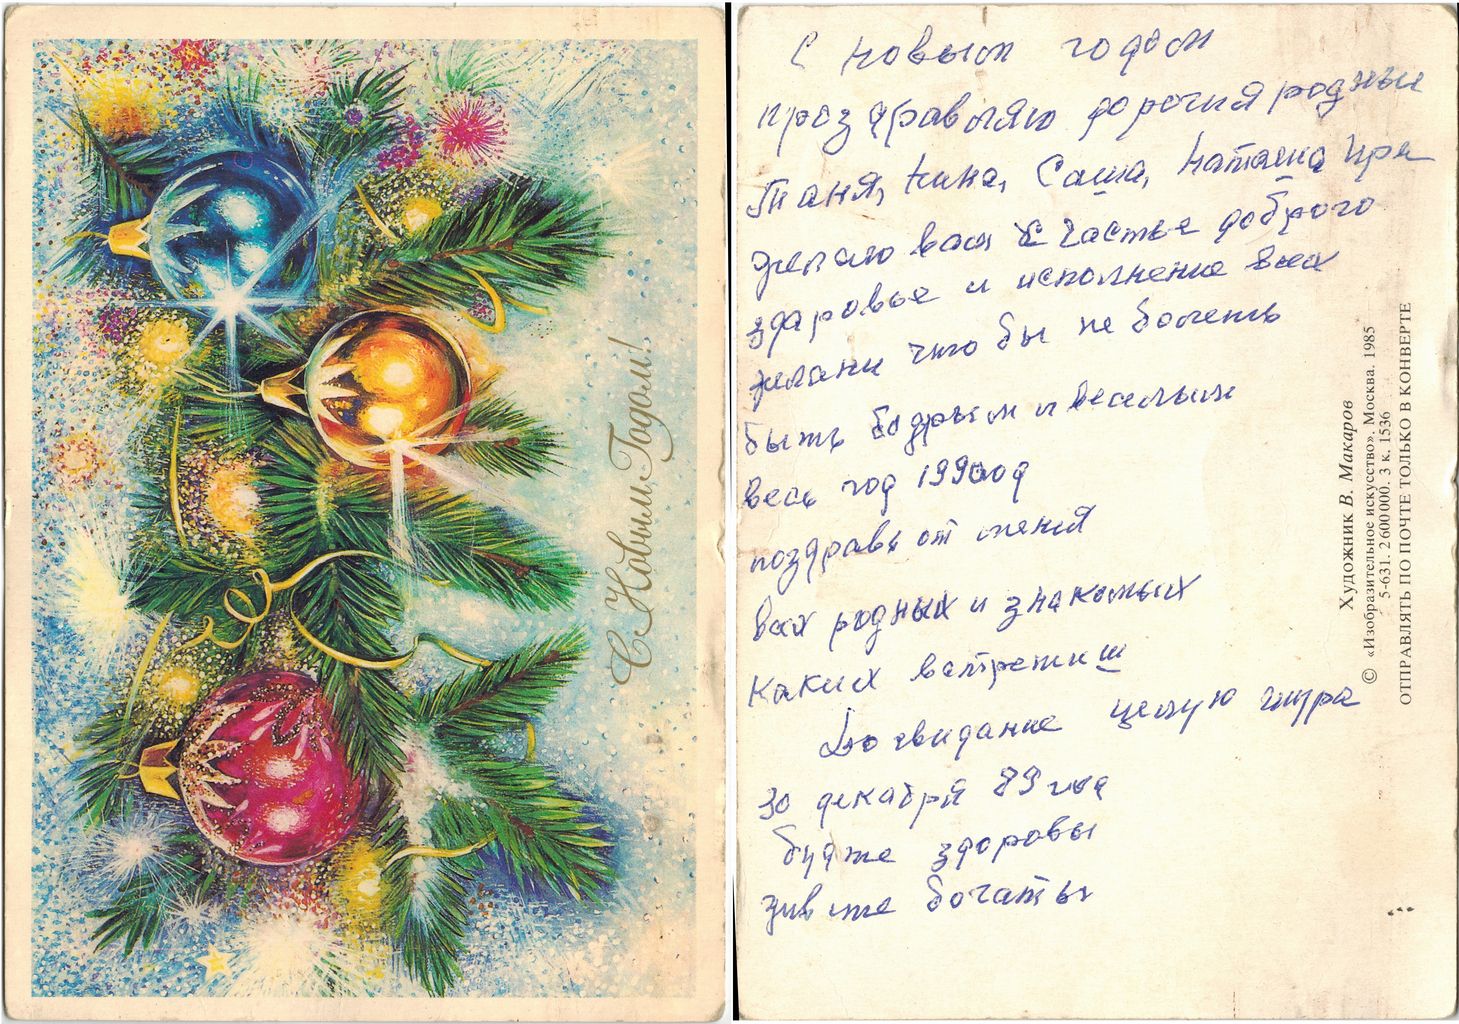 С Новым Годом!
С новым годом
проздравляю дорочия родные
Таня, Нина, Саша, Наташа Ира
желаю вам счастье доброго
здоровье и исполнение всех
желани что бы не болеть
быть бодрым и веселым
весь год 1990 год
поздравь от меня
всех родных и знакомых
каких встретиш
До свидание целую шура
30 декабря 89 года
будте здоровы
живите богаты
Художник В. Макаров
© «Изобразительное искусство». Москва. 1985
5-631. 2 600 000. 3 к. 1536
ОТПРАВЛЯТЬ ПО ПОЧТЕ ТОЛЬКО В КОНВЕРТЕ